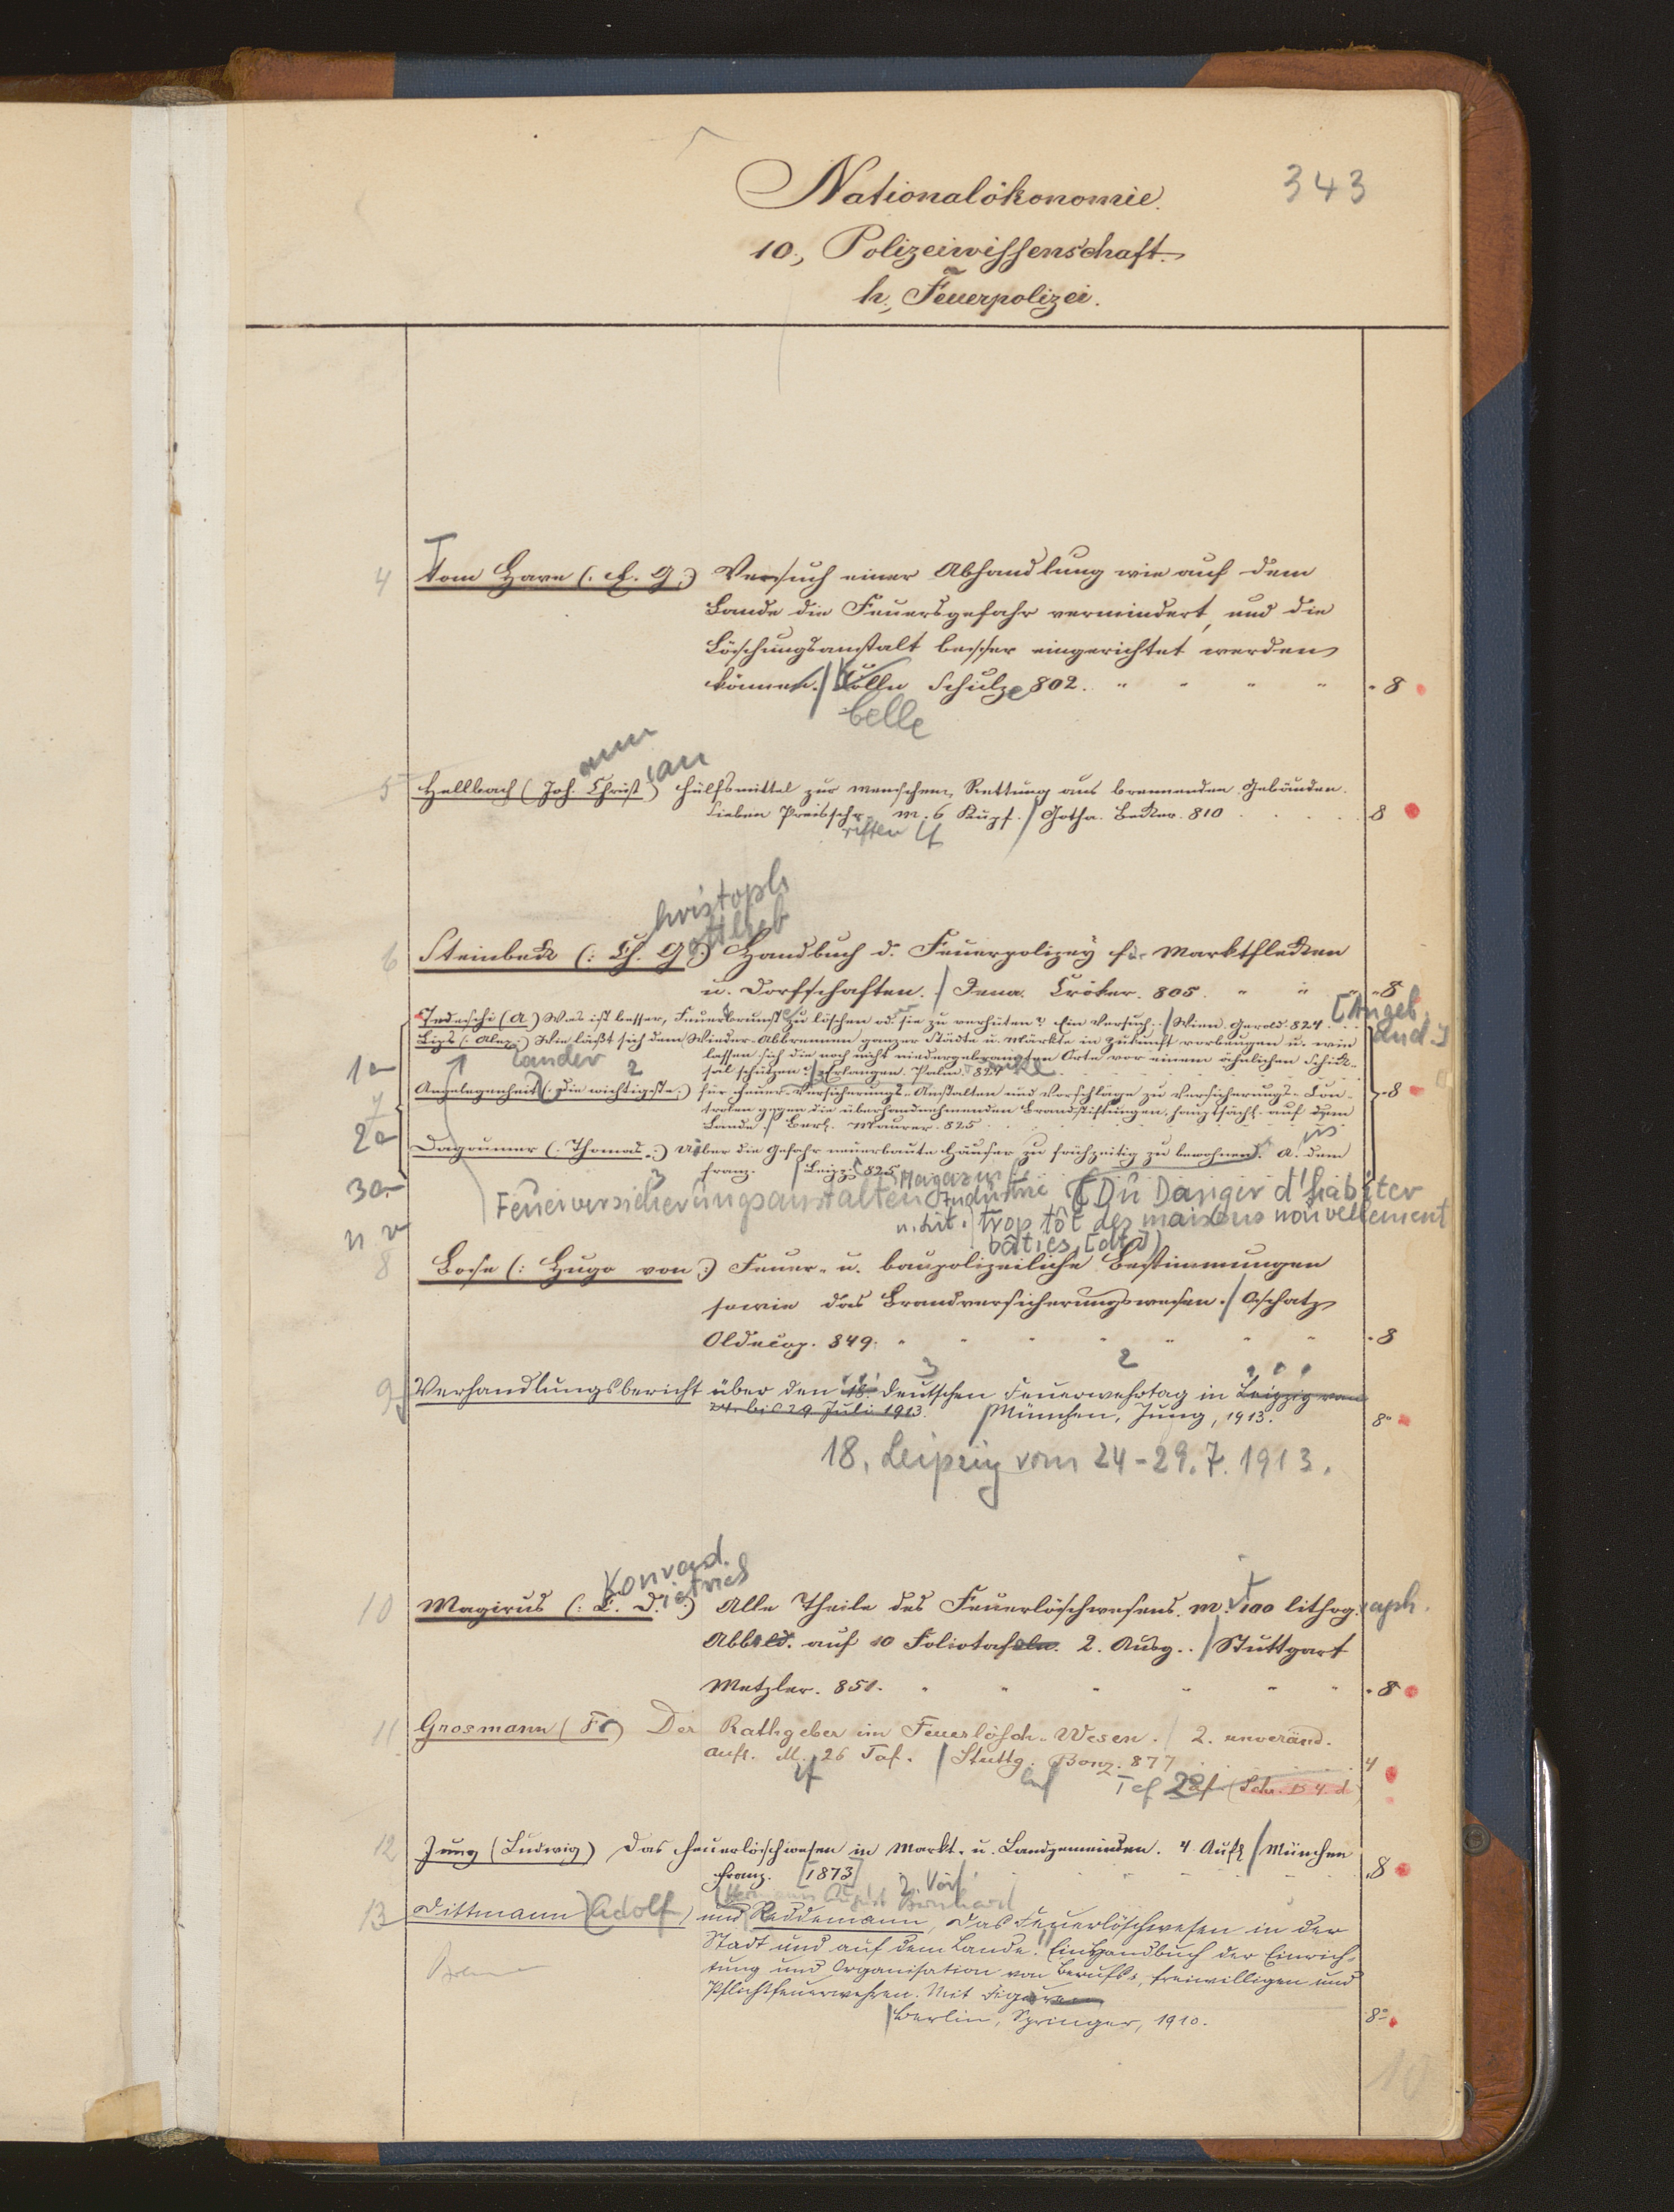 343
Nationalökonomie.
10., Polizeiwissenschaft.
h., Feuerpolizei.
4 Tom Have (: G.) Versuch einer Abhandlung wie auf dem
Lande die Feuersgefahr vermindert, und die
Löschungsanstalt besser eingerichtet werden
können. / Schulze 802. " " " " " 8
belle
ann ian
5 Hellbach (Joh. Christ) Hülfsmittel zur Menschen Rettung aus brennenden Gebäuden.
Sieben Preisschr. m. 6 Kupf. / Gotha. Becker. 810 . . . . . 8
riften
hristoph
ottlieb
6 Steinbeck (: Ch. G :) Handbuch d. Feuerpolizey für Marktflecken
u. Dorfschaften. / Jena. Cröker. 805. " " " " 8
[Angeb.
Tedeschi (A.) Was ist besser, Feuersbrunst zu löschen od. sie zu verhüten? Ein Versuch. / Wien. Gerold. 824.
and.]
Lips (: Alex :) Wie läßt sich dem Wieder-Abbrennen ganzer Städte u. Märkte in Zukunft vorbeugen u. wie
1a ander 2 lassen sich die noch nicht niedergebrannten Orte vor einem ähnlichen Schick-
sal schützen? / Erlangen. Palm. 827
Angelegenheit (: Die wichtigste :) für Feuer-Versicherungs-Anstalten und Vorschläge zu Versicherungs-Con- 8
7
trolen gegen die überhandnehmenden Brandstiftungen, hauptsächl. auf dem
2a Lande. / Berl. Maurer. 825
Dagoumer (: Thomas :) Über die Gefahr neuerbaute Häuser zu frühzeitig zu bewohnen. A. dem
franz. / Leipz. 825
3a 3 Magazin f.
Feuerversicherungsanstalten Industrie (Du Danger d'habiter
u. Lit. trop tôt des maisons nouvellement
bâties, [dt.])
8 Bose (: Hugo von :) Feuer- u. baupolizeiliche Bestimmungen
sowie das Brandversicherungswesen. / Oschatz
Oldecop. 849. " " " " " " " 8
3 2
9 Verhandlungsbericht über den 18. deutschen Feuerwehrtag in Leipzig vom
24. bis 29 Juli 1913. / München, Jung, 1913. 8°
18. Leipzig vom 24-29.7.1913.
Konrad.
ietrich
10 Magirus (: C. D. :) Alle Theile des Feuerlöschwesens. m. 100 lithog. raph.
Abbild. auf 10 Foliotafeln. 2. Ausg. / Stuttgart
Metzler. 851. " " " " " " 8
11 Grosmann (Fr) Der Rathgeber im Feuerlösch-Wesen. / 2. unveränd.
Aufl. M. 26 Taf. / Stuttg. Bonz. 877 . . . . 4
Tef 2° (Schr. D 4. d)
12 Jung (Ludwig) Das Feuerlöschwesen in Markt- u. Landgemeinden. 4 Aufl / München
Franz. [1873] " " " 8
2. Vorf.
Hermann August Bernhard
13 Dittmann (Adolf) und Reddemann, Das Feuerlöschwesen in der
Stadt und auf dem Lande. Ein Handbuch der Einrich-
tung und Organisation von Berufs-, freiwilligen und
Pflichtfeuerwehren. Mit Figuren
/ Berlin, Springer, 1910. 8°
10